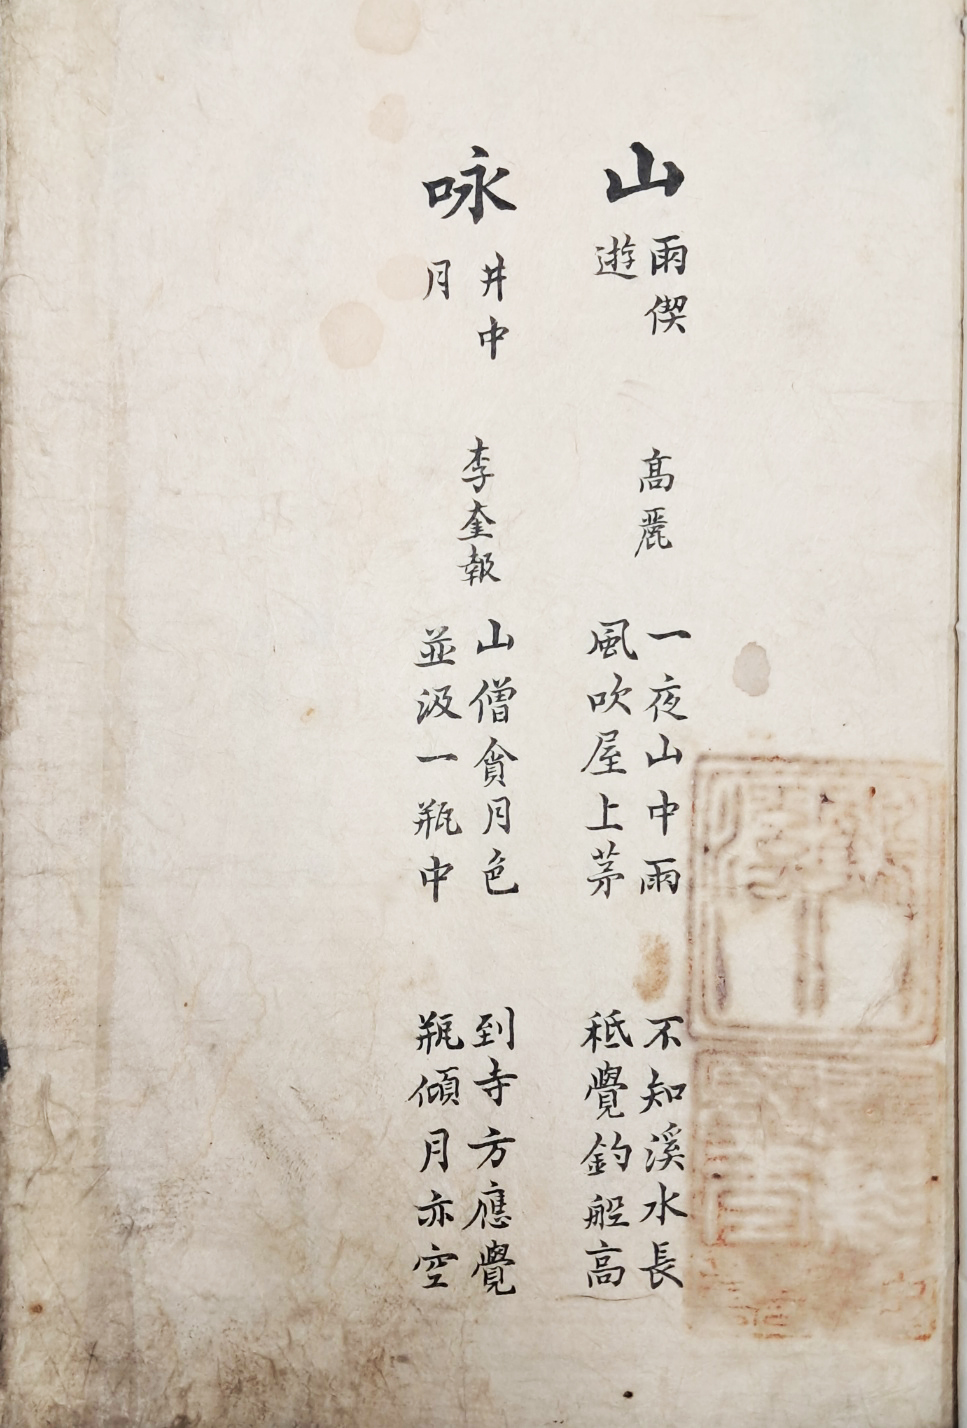 山
雨偰
遊
高麗
一夜山中雨
風吹屋上茅
不知溪水長
秪覺釣船高
咏
井中
月
李奎報
山僧貪月色
並汲一瓶中
到寺方應覺
瓶傾月亦空